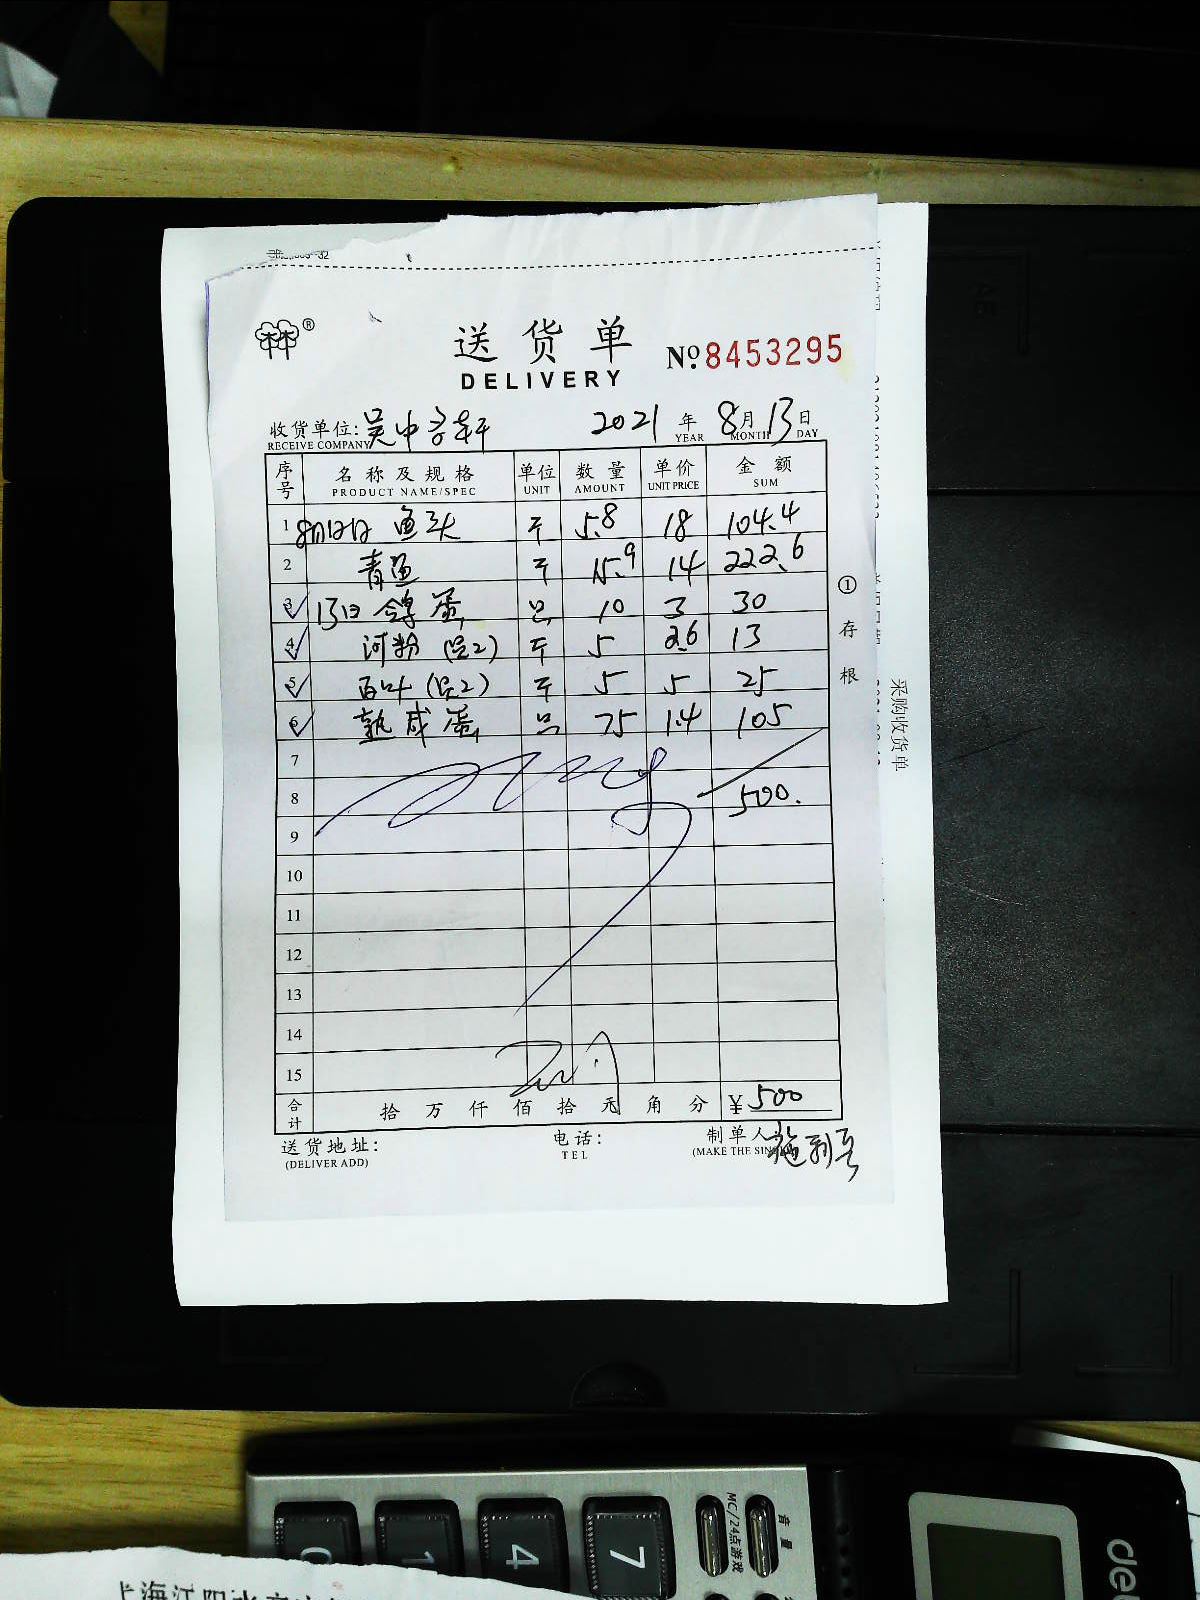 ®
送货单
DELIVERY
№ 8453295
收货单位: 吴中 轩 2021 年 8 月 13 日
RECEIVE COMPANY YEAR MONTH DAY
序号 名称及规格 单位 数量 单价 金额
PRODUCT NAME/SPEC UNIT AMOUNT UNIT PRICE SUM
1 8月12日 鱼头 斤 5.8 18 104.4
2 青鱼 斤 15.9 14 222.6
3 13日 鸽蛋 只 10 3 30
4 河粉 (兑2) 斤 5 2.6 13
5 百叶 (兑2) 斤 5 5 25
6 熟咸蛋 只 75 1.4 105
7
8 500.
9
10
11
12
13
14
15
合计 拾 万 仟 佰 拾 元 角 分 ¥ 500
送货地址: 电话: 制单人
(DELIVER ADD) TEL (MAKE THE SIN
①存根
采购收货单
音量
MC/24点游戏
0 1 4 7
de
上海江阳水产